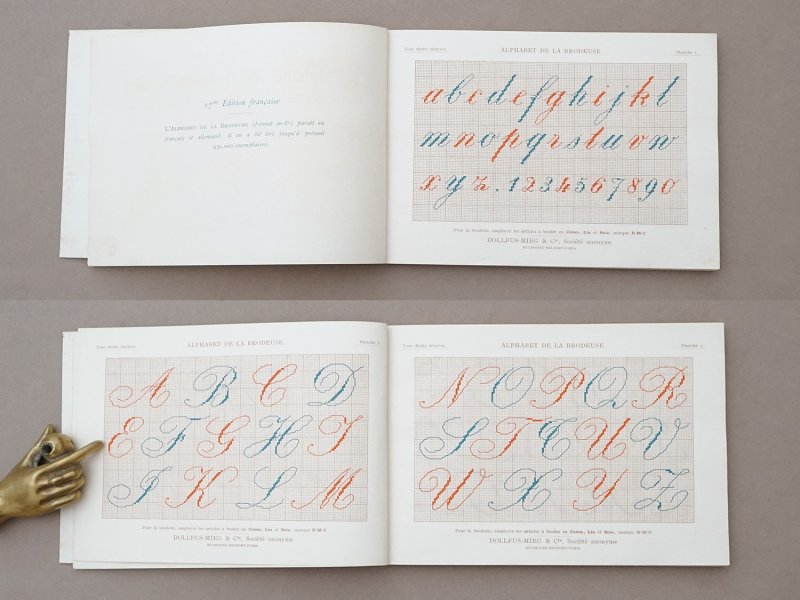 17me Edition française
L'ALPHABET DE LA BRODEUSE (format in-8º) paraît en
français et allemand; il en a été tiré jusqu'à présent
930.000 exemplaires.
Tous droits réservés ALPHABET DE LA BRODEUSE Planche 1
a b c d e f g h i j k l
m n o p q r s t u v w
x y z . 1 2 3 4 5 6 7 8 9 0
Pour la broderie, employer les articles à broder en Coton, Lin et Soie, marque D·M·C
DOLLFUS-MIEG & Cie, Société anonyme
MULHOUSE-BELFORT-PARIS
Tous droits réservés ALPHABET DE LA BRODEUSE Planche
A B C D
E F G H I
J K L M
Pour la broderie, employer les articles à broder en Coton, Lin et Soie, marque D·M·C
DOLLFUS-MIEG & Cie, Société anonyme
MULHOUSE-BELFORT-PARIS
Tous droits réservés ALPHABET DE LA BRODEUSE Planche
N O P Q R
S T T U V
W X Y Z
Pour la broderie, employer les articles à broder en Coton, Lin et Soie, marque D·M·C
DOLLFUS-MIEG & Cie, Société anonyme
MULHOUSE-BELFORT-PARIS